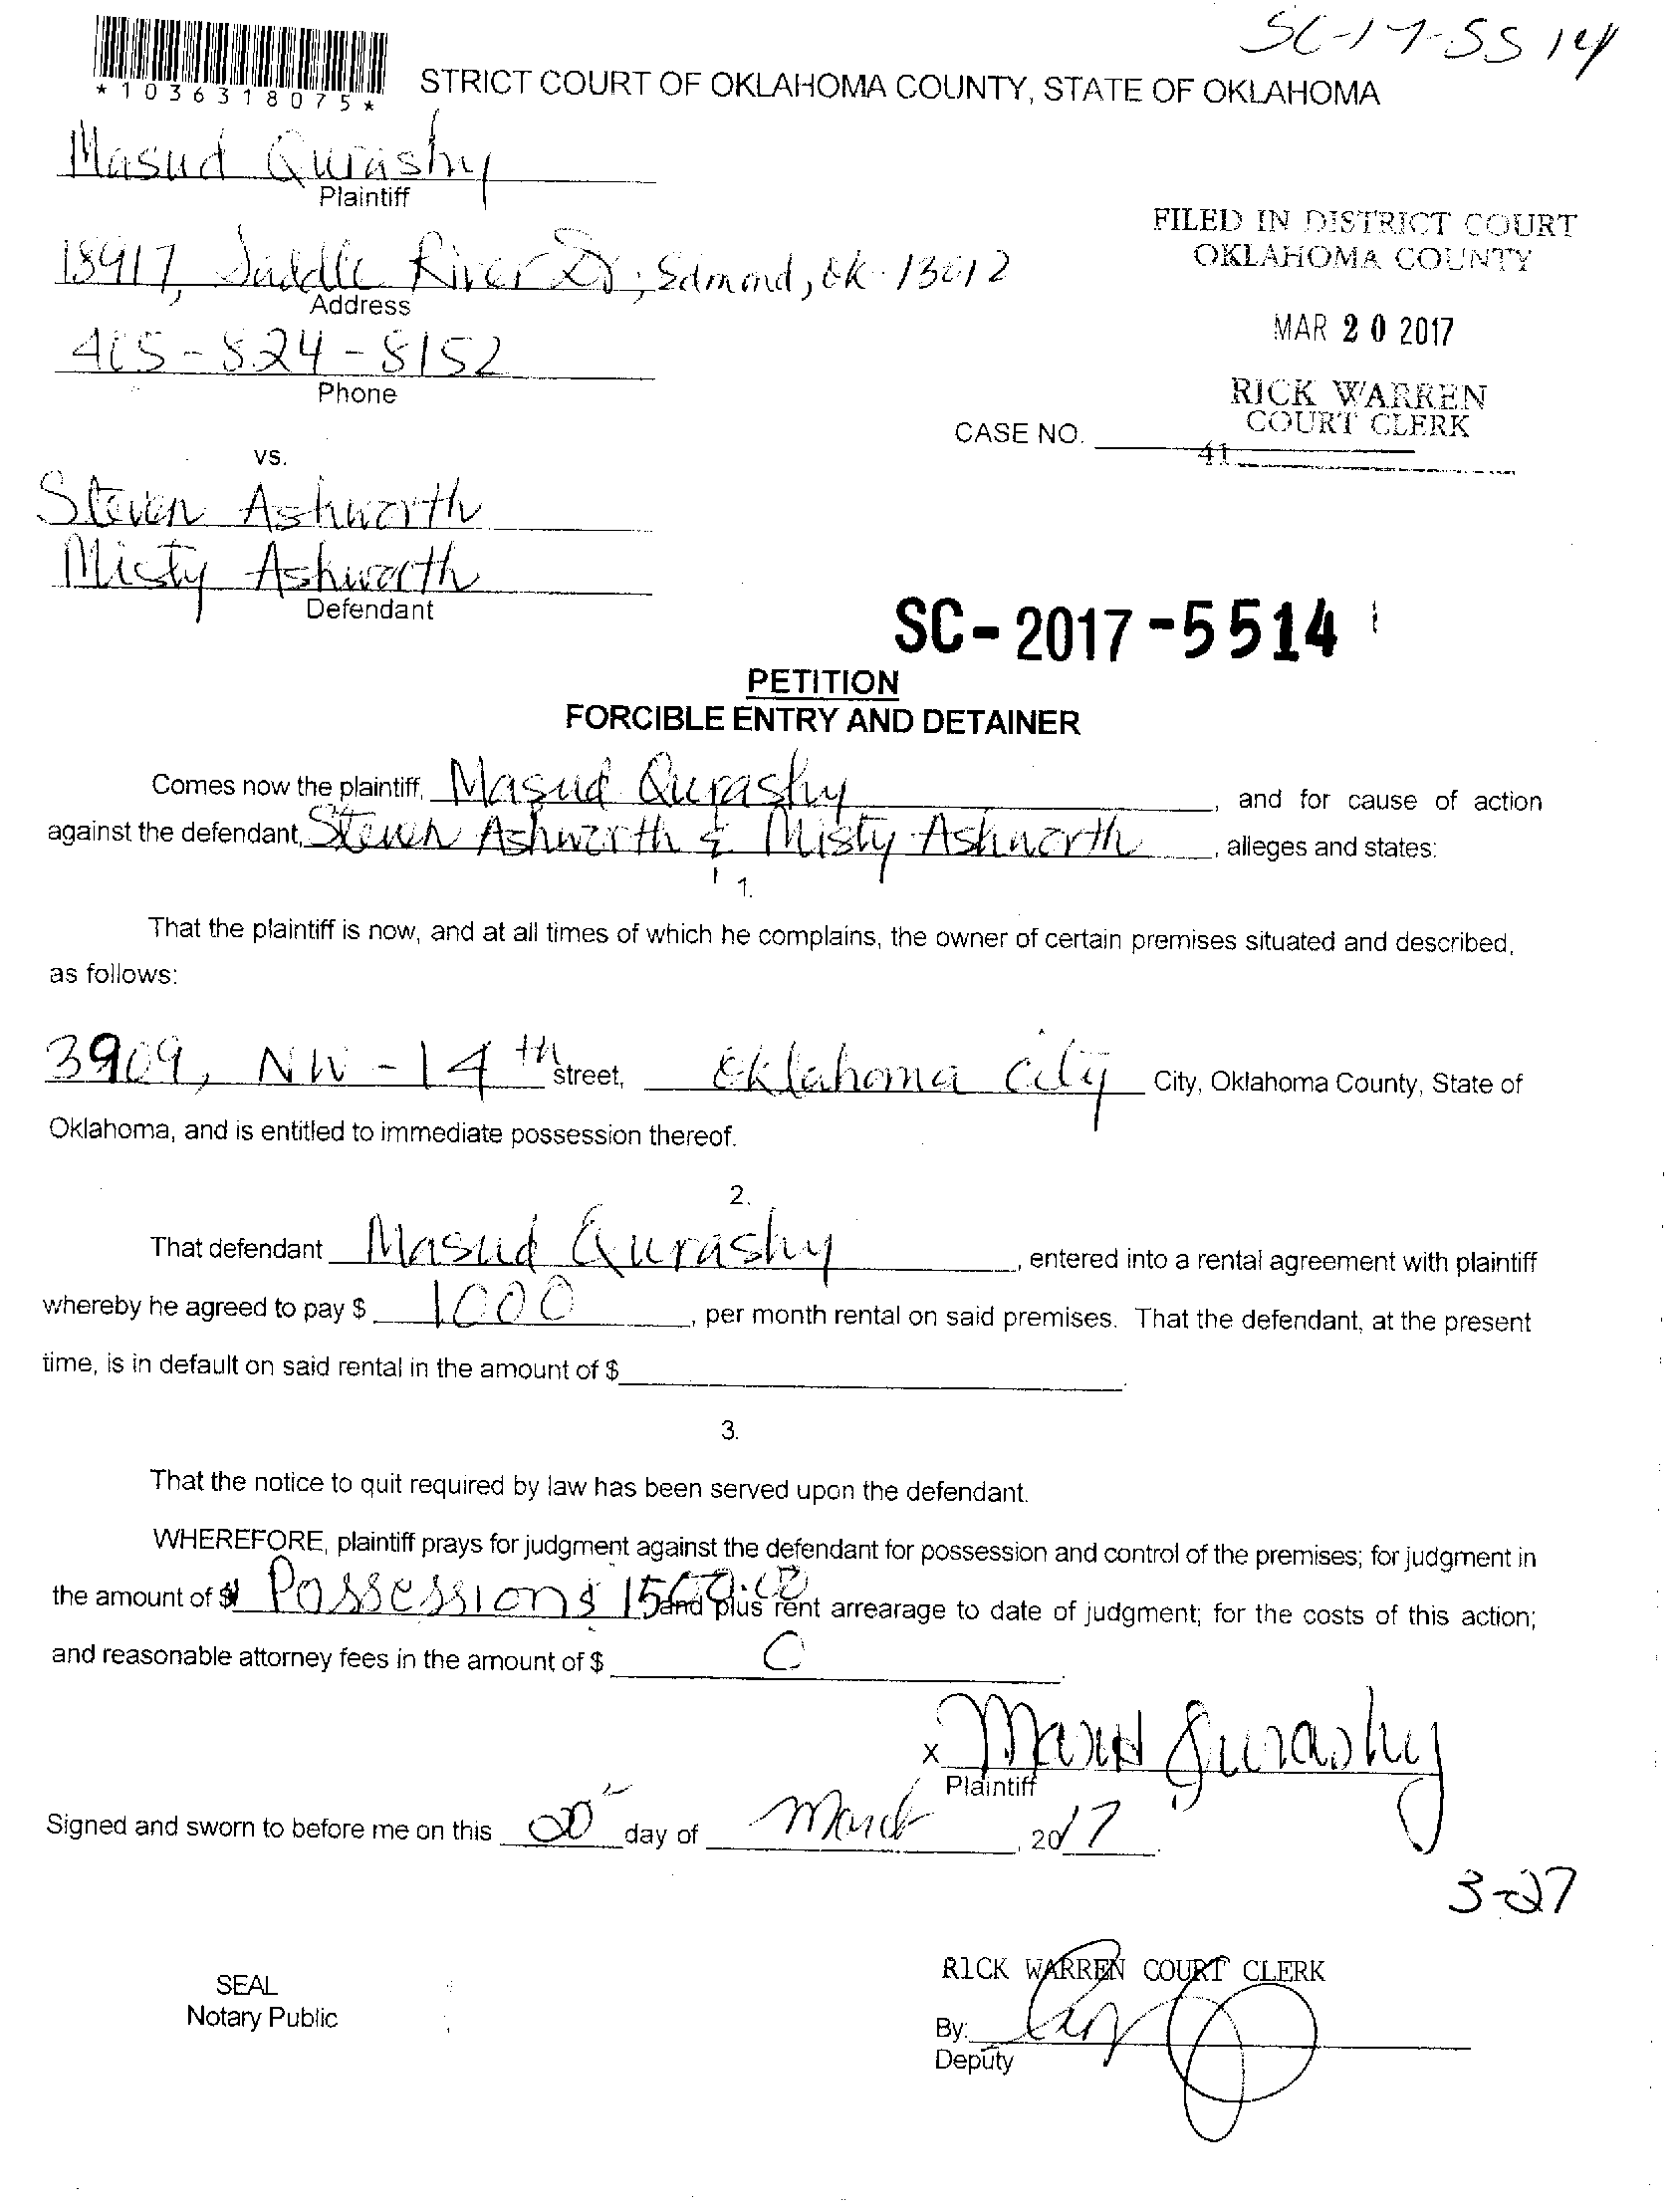 SC-17-5514
*1036318075*
STRICT COURT OF OKLAHOMA COUNTY, STATE OF OKLAHOMA
Masud Qurashy
Plaintiff
18917, Saddle River Dr; Edmond, OK-73012
Address
FILED IN DISTRICT COURT
OKLAHOMA COUNTY
MAR 20 2017
405-824-8152
Phone
RICK WARREN
COURT CLERK
CASE NO.
41
vs.
Steven Ashworth
Misty Ashworth
Defendant
SC-2017-5514
PETITION
FORCIBLE ENTRY AND DETAINER
Comes now the plaintiff, Masud Qurashy, and for cause of action
against the defendant, Steven Ashworth & Misty Ashworth, alleges and states:
1.
That the plaintiff is now, and at all times of which he complains, the owner of certain premises situated and described,
as follows:
3909, NW-14th street, Oklahoma City City, Oklahoma County, State of
Oklahoma, and is entitled to immediate possession thereof.
2.
That defendant Masud Qurashy, entered into a rental agreement with plaintiff
whereby he agreed to pay $ 1000, per month rental on said premises. That the defendant, at the present
time, is in default on said rental in the amount of $
3.
That the notice to quit required by law has been served upon the defendant.
WHEREFORE, plaintiff prays for judgment against the defendant for possession and control of the premises; for judgment in
the amount of $ Possession $ and plus rent arrearage to date of judgment; for the costs of this action;
and reasonable attorney fees in the amount of $ 0
x Masud Qurashy
Plaintiff
Signed and sworn to before me on this 20 day of March, 2017.
3-27
RICK WARREN COURT CLERK
SEAL
Notary Public
By:
Deputy